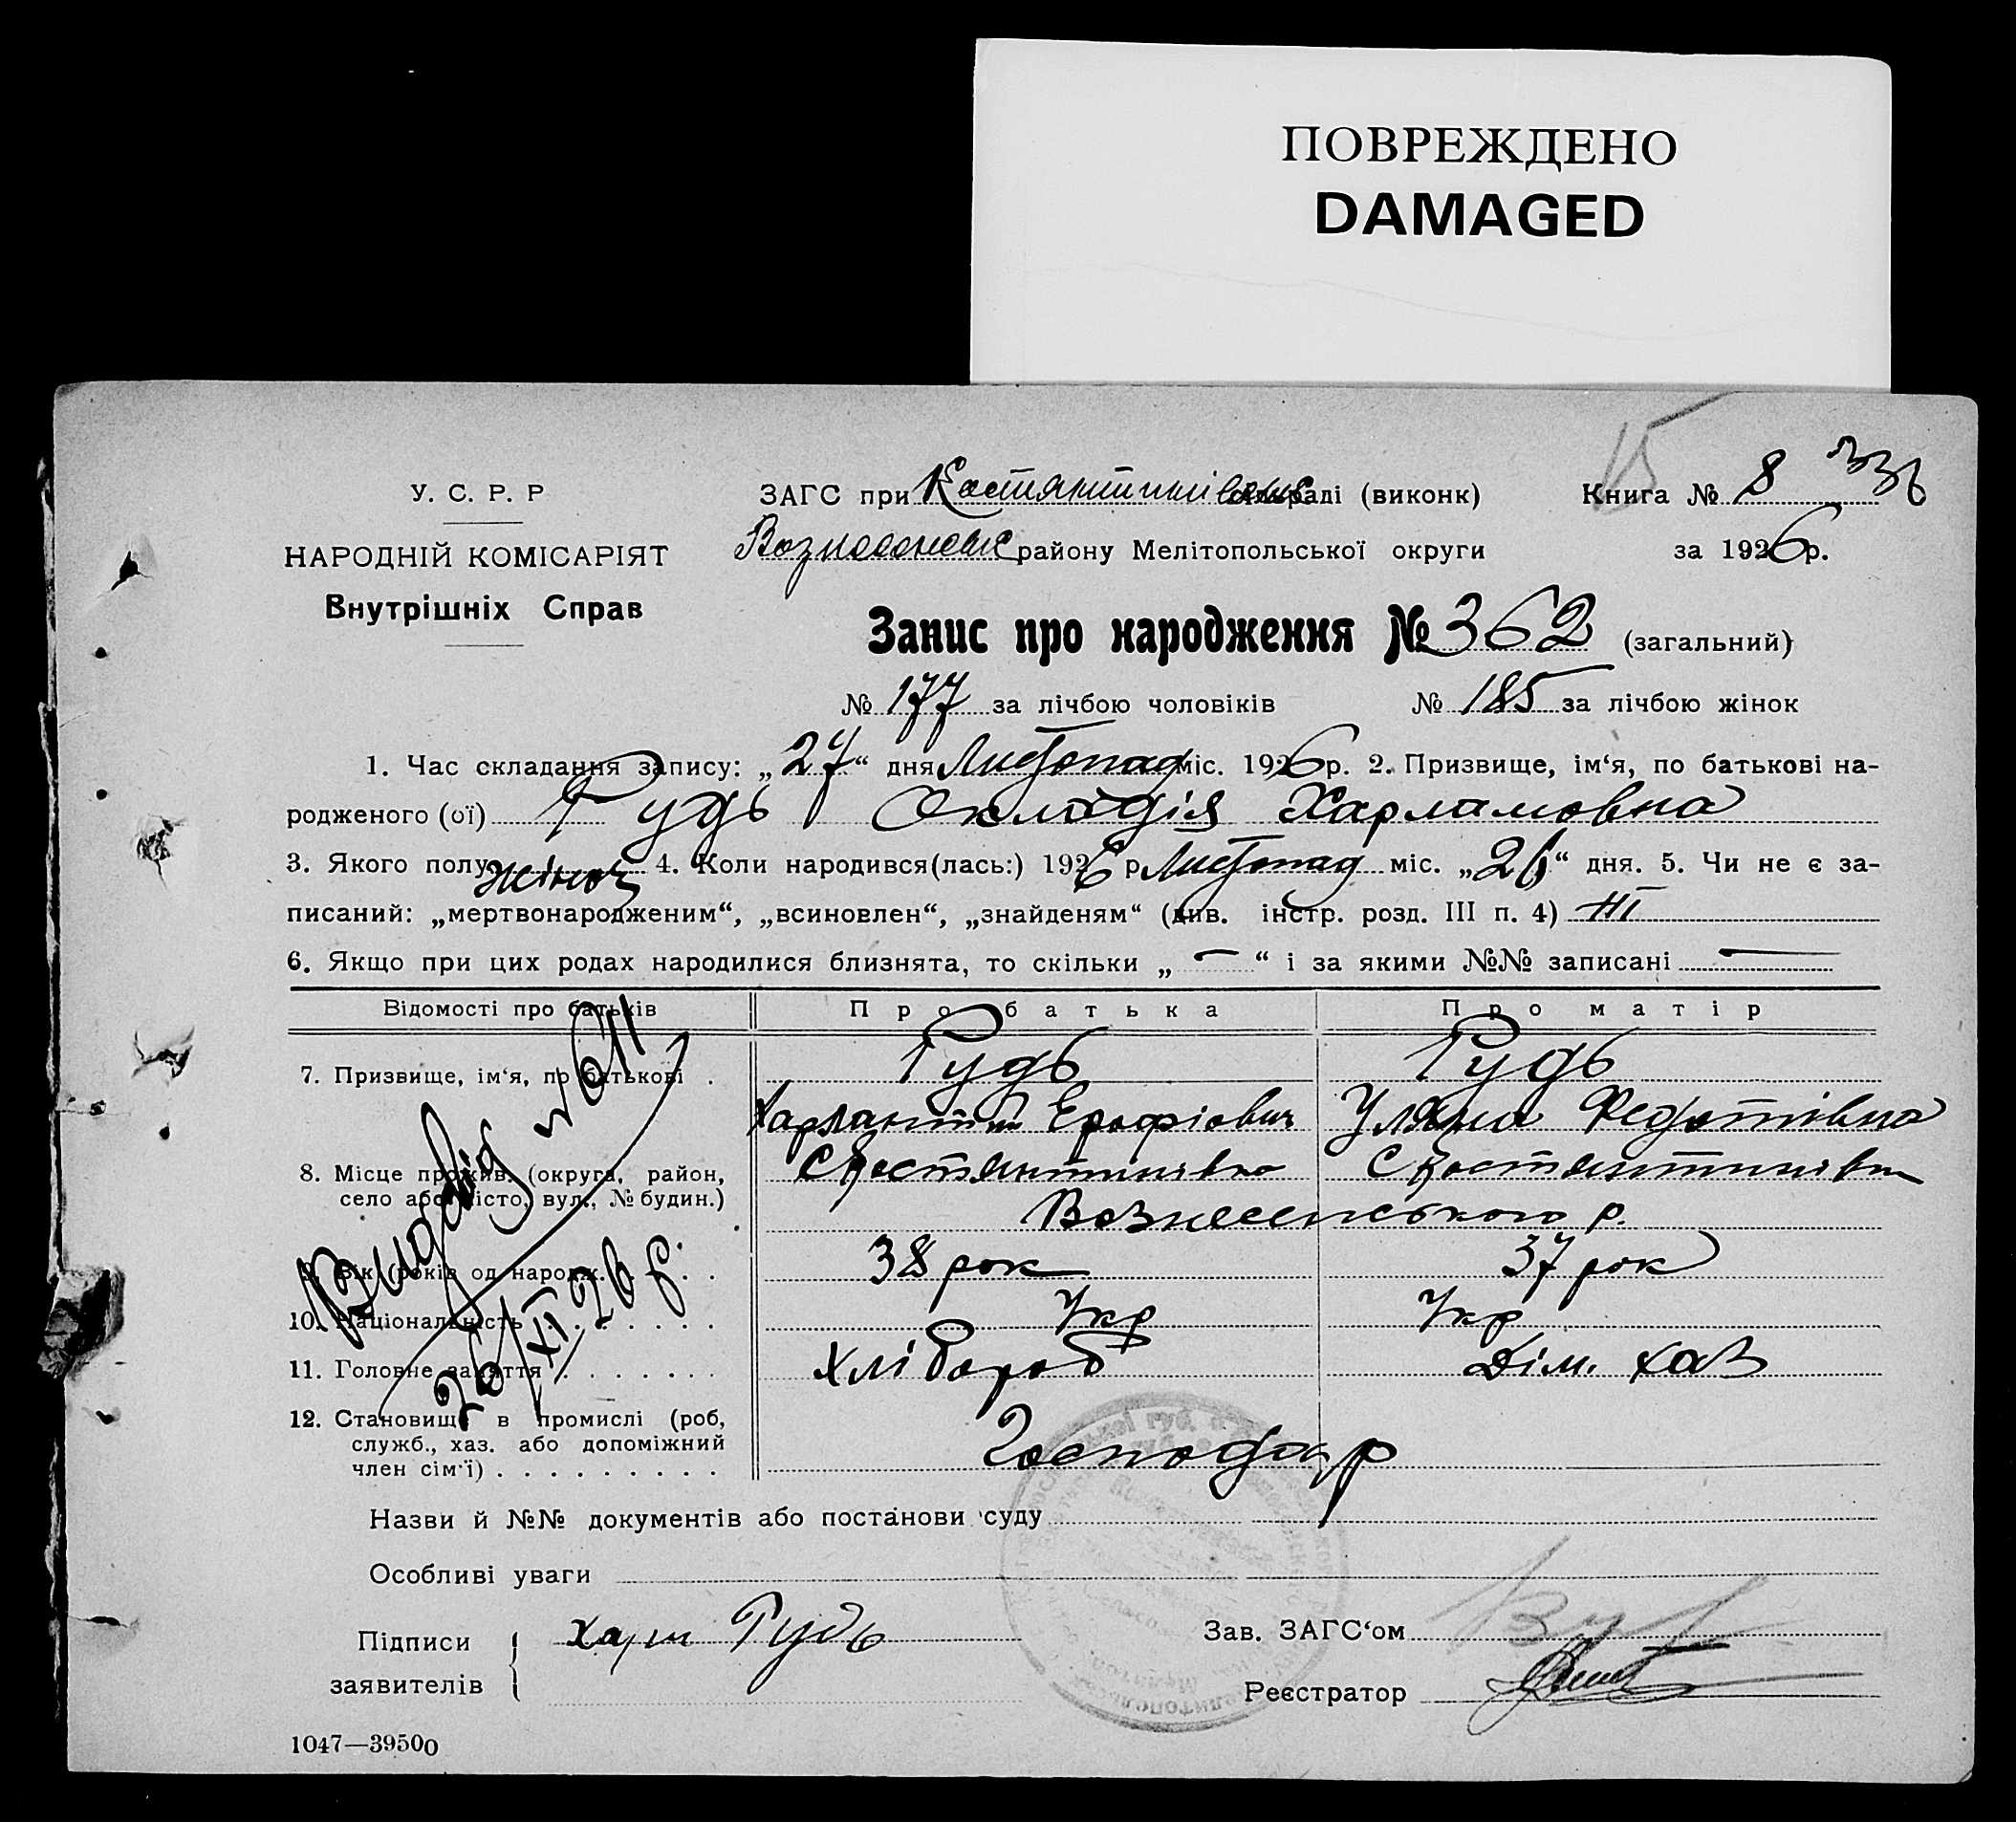 ПОВРЕЖДЕНО
DAMAGED
15
336
У. С. Р. Р
НАРОДНІЙ КОМІСАРІЯТ
Внутрішніх Справ
ЗАГС при Костянтинівськ сільраді (виконк) Книга № 8
Вознесенськ району Мелітопольської округи за 1926 р.
Запис про народження № 362 (загальний)
№ 177 за лічбою чоловіків № 185 за лічбою жінок
1. Час складання запису: „27“ дня Листопад міс. 1926 р. 2. Призвище, ім‘я, по батькові на-
родженого (ої) Гудь Окладія Харламовна
3. Якого полу жіноч 4. Коли народився(лась:) 1926 р Листопад міс. „26“ дня. 5. Чи не є за-
писаний: „мертвонародженим“, „всиновлен“, „знайденям“ (див. інстр. розд. III п. 4) Ні
6. Якщо при цих родах народилися близнята, то скільки „ — “ і за якими №№ записані —
Відомості про батьків Про батька Про матір
7. Призвище, ім‘я, по батькові . Гудь Гудь
Ерофіович Уляна Федотівна
8. Місце прожив. (округа, район, С Костянтинівка С Костянтинівка
село або місто, вул., № будин.) Вознесенського р.
9. Вік (років од народж. . . . 38 рок 37 рок
10. Національність . . . . . . . Укр Укр
11. Головне заняття . . . . . . . Хлібороб Дім. хаз
12. Становище в промислі (роб,
служб., хаз. або допоміжний Господар
член сім‘ї) . . . . . . . . .
Видавід № 611
26/XI 26 р.
Назви й №№ документів або постанови суду
Особливі уваги
Підписи Харл Гудь Зав. ЗАГС‘ом
заявителів Реєстратор
1047—39500